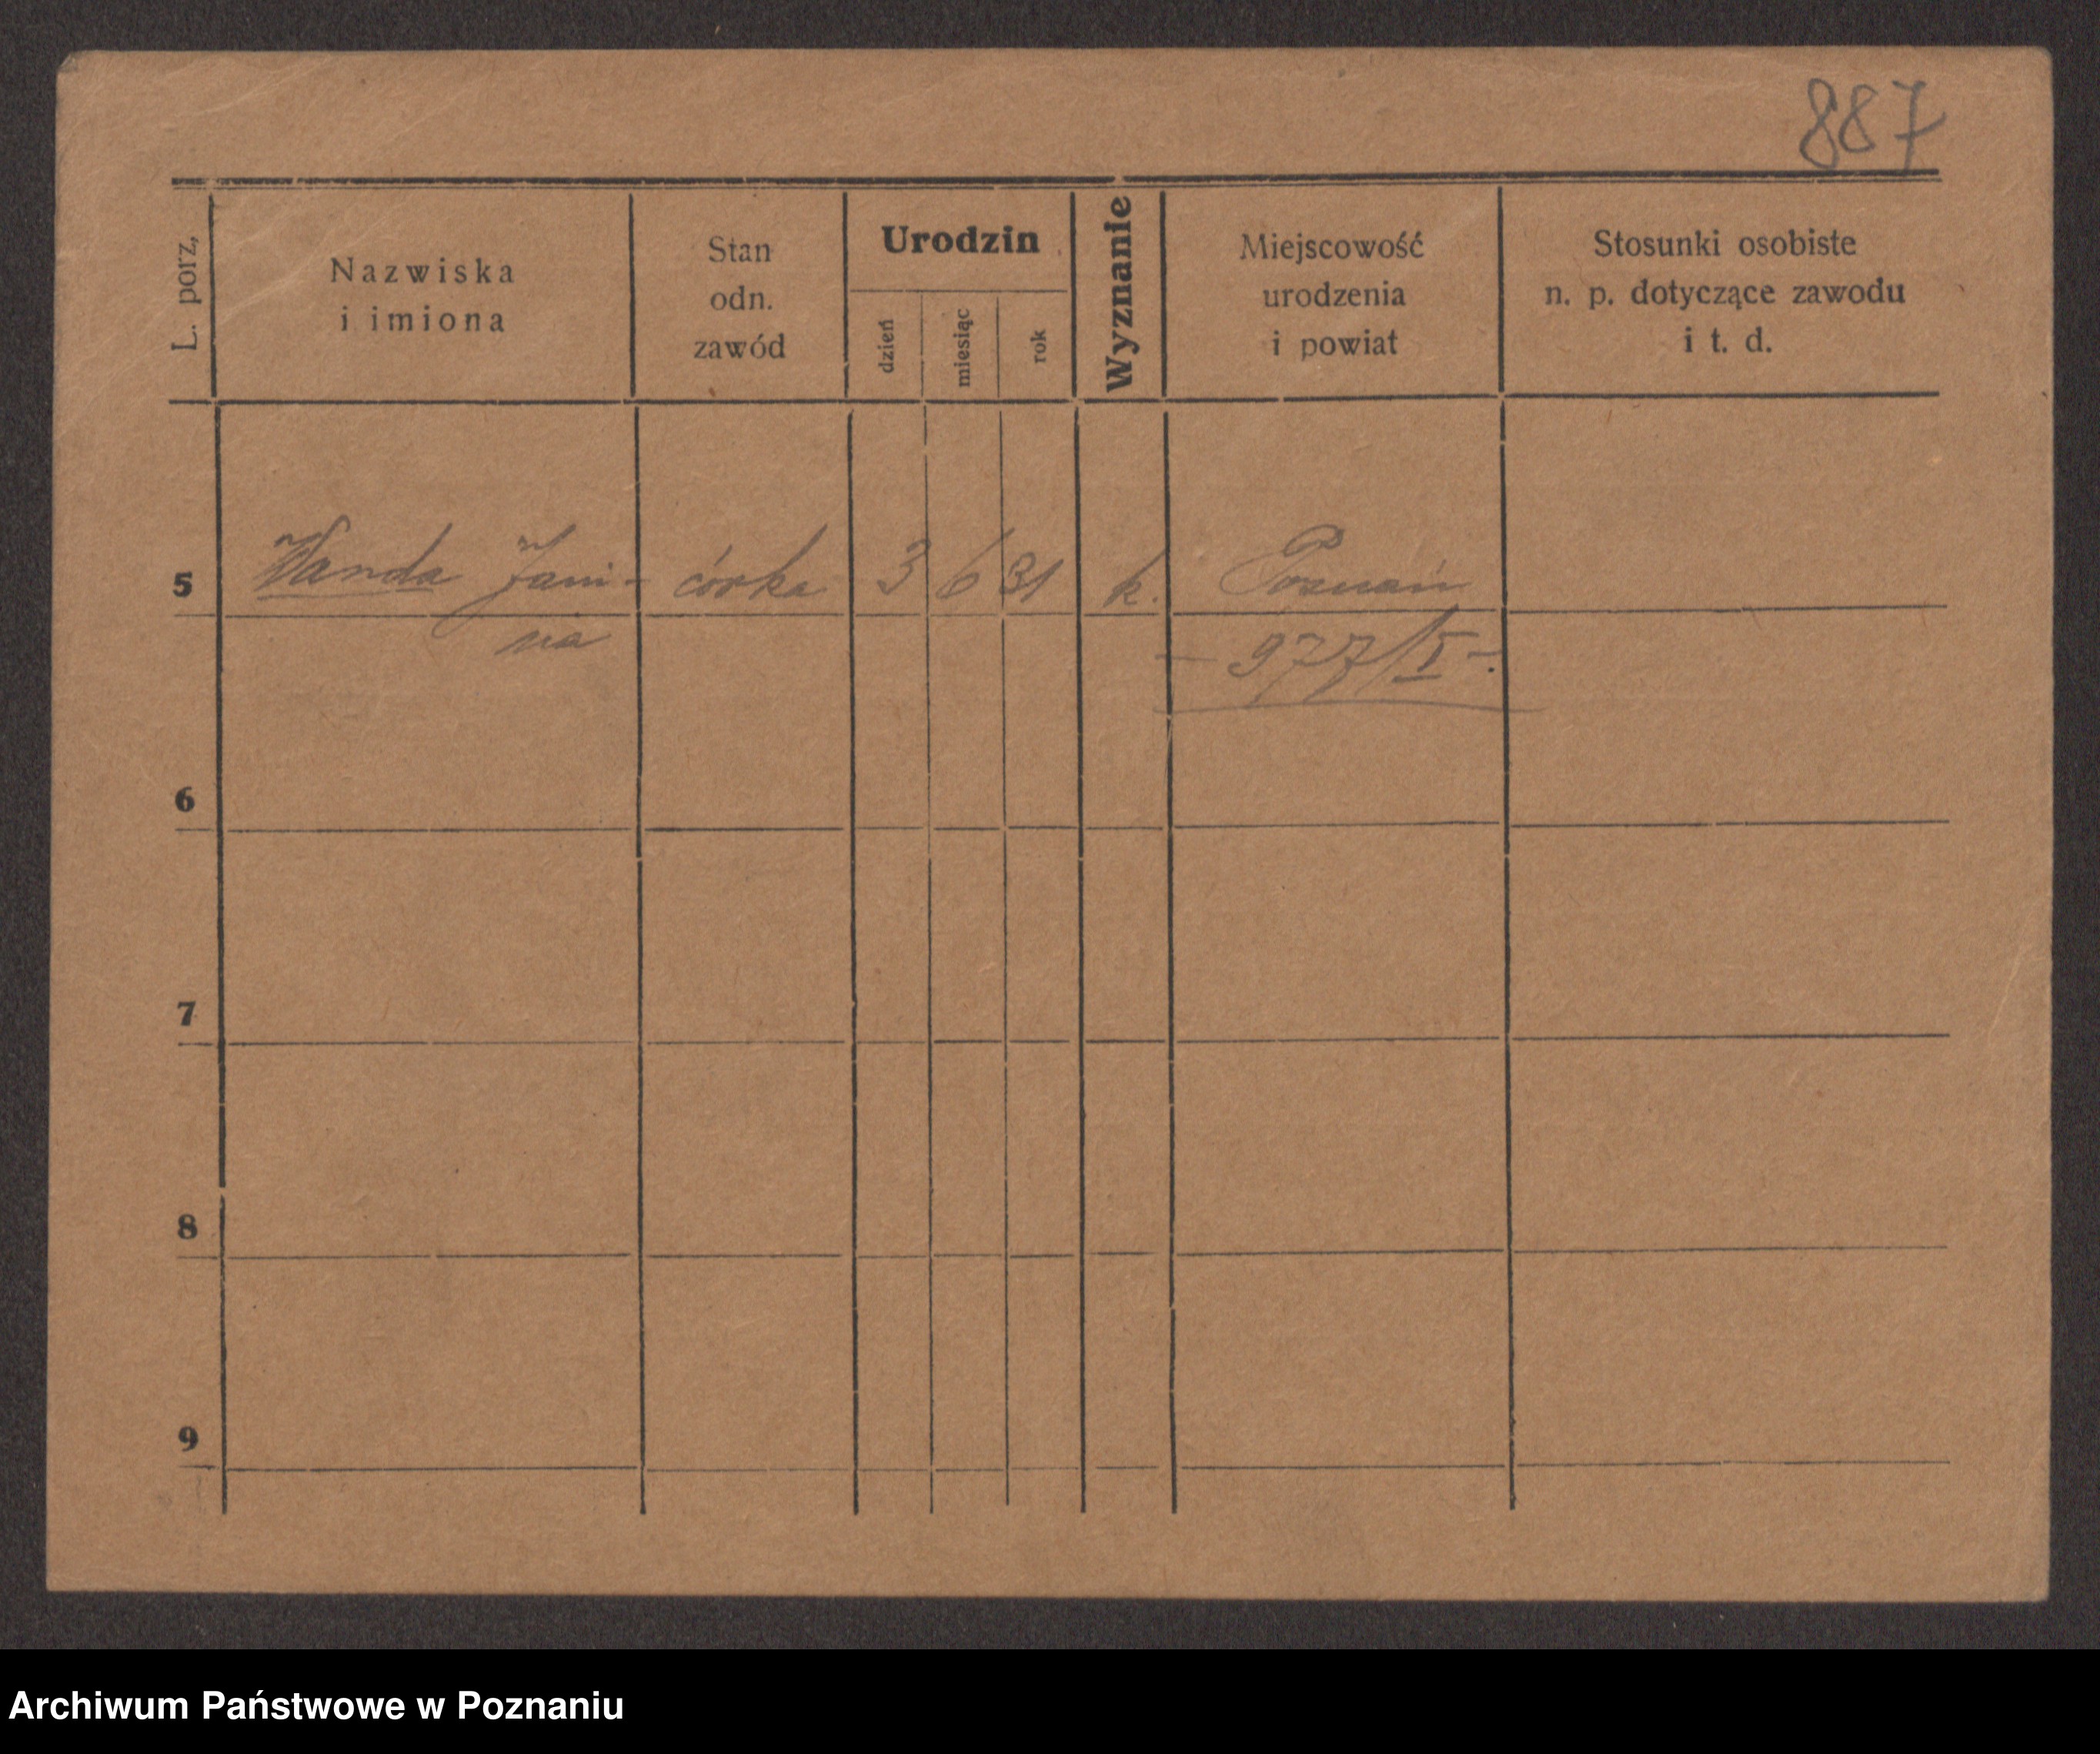 887
L. porz,
Nazwiska
i imiona
Stan
odn.
zawód
Urodzin
dzień
miesiąc
rok
Wyznanie
Miejscowość
urodzenia
i powiat
Stosunki osobiste
n. p. dotyczące zawodu
i t. d.
5 Wanda Jani- córka 3 6 31 k. Poznań
na
- 977/I -.
6
7
8
9
Archiwum Państwowe w Poznaniu